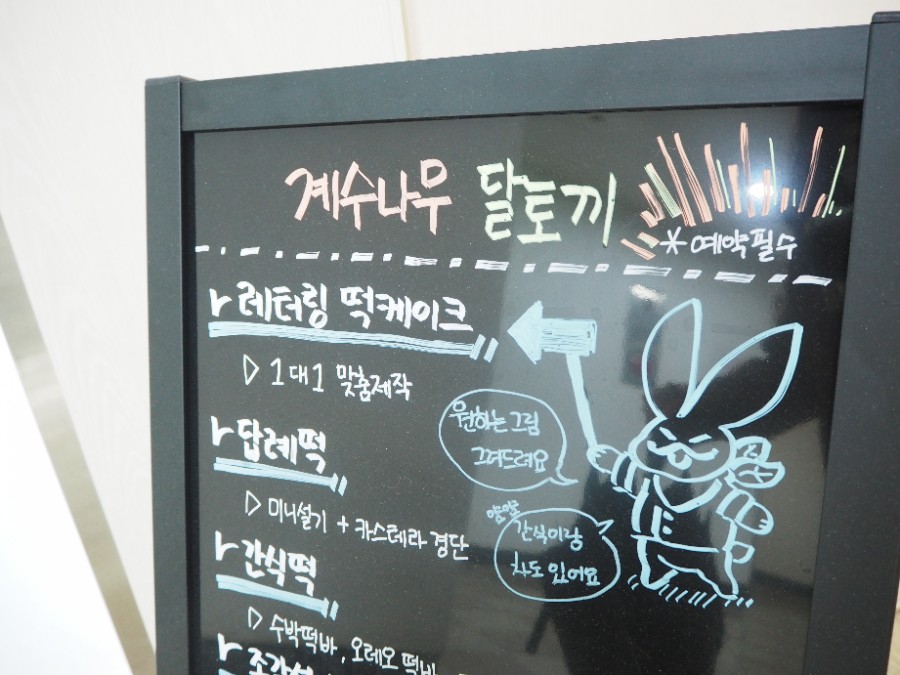 계수나무 달토끼
*예약필수
레터링 떡케이크
▷ 1대1 맞춤제작
원하는 그림
그려드려요
답례떡
▷ 미니설기 + 카스테라 경단
냠냠
간식이랑
차도 있어요
간식떡
▷ 수박떡바, 오레오 떡바